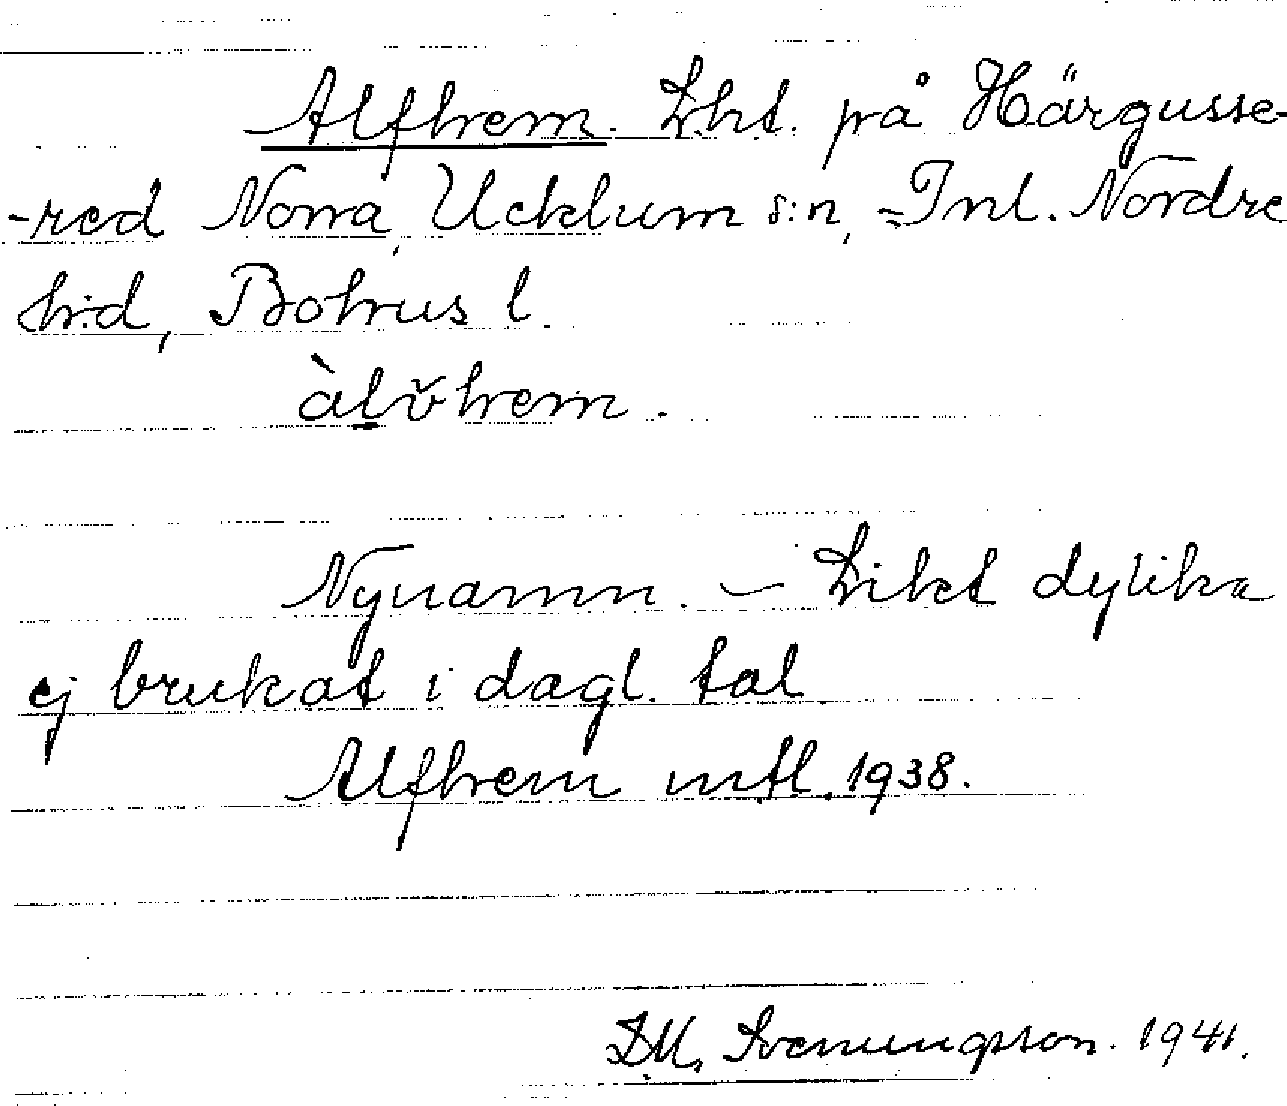 Alfhem. Lht. på Härgusse-
-red Norra, Ucklum s:n, Inl. Nordre
h:d, Bohus l.
àlv̆hem.
Nynamn. – Likt dylika
ej brukat i dagl. tal
Alfhem mtl. 1938.
D.M. Svenungsson. 1941.